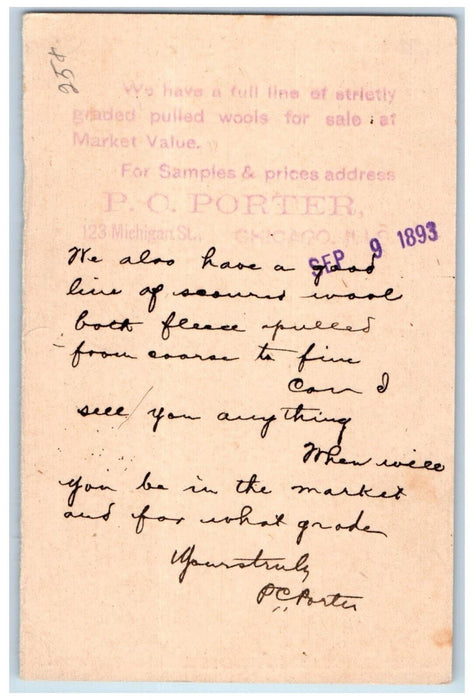 258
We have a full line of strictly
graded pulled wools for sale at
Market Value.
For Samples & prices address
P. C. PORTER,
123 Michigan St., CHICAGO, ILL.
SEP 9 1893
We also have a good
line of scoured wool
both fleece & pulled
from coarse to fine
Can I
sell you anything
When will
you be in the market
and for what grade
Yours truly
P C Porter